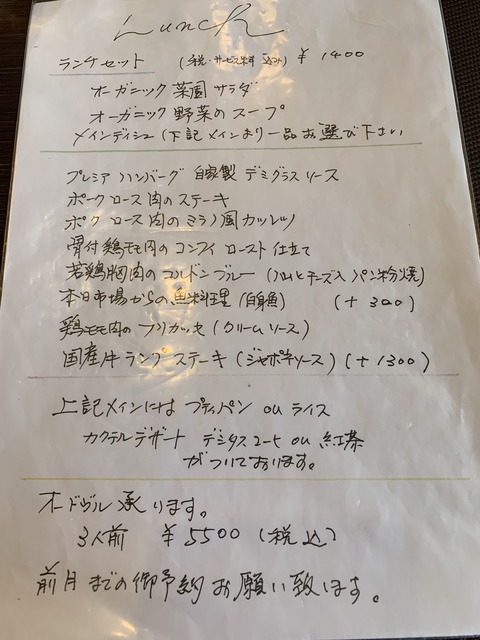 Lunch
ランチセット (税・サービス料込み) ¥1400
オーガニック菜園サラダ
オーガニック野菜のスープ
メインディシュ(下記メインより一品お選び下さい
プレミアハンバーグ 自家製デミグラスソース
ポークロース肉のステーキ
ポークロース肉のミラノ風カツレツ
骨付鶏モモ肉のコンフィ ロースト仕立て
若鶏胸肉のコルドンブルー (ハムとチーズ入パン粉焼)
本日市場からの魚料理 (白身魚) (+300)
鶏モモ肉のフリカッセ (クリームソース)
国産牛ランプステーキ (ジャポネソース) (+1300)
上記メインには プティパン ou ライス
カクテルデザート デミタスコーヒー ou 紅茶
がついております。
オードヴル承ります。
3人前 ¥5500 (税込)
前月までの御予約お願い致します。